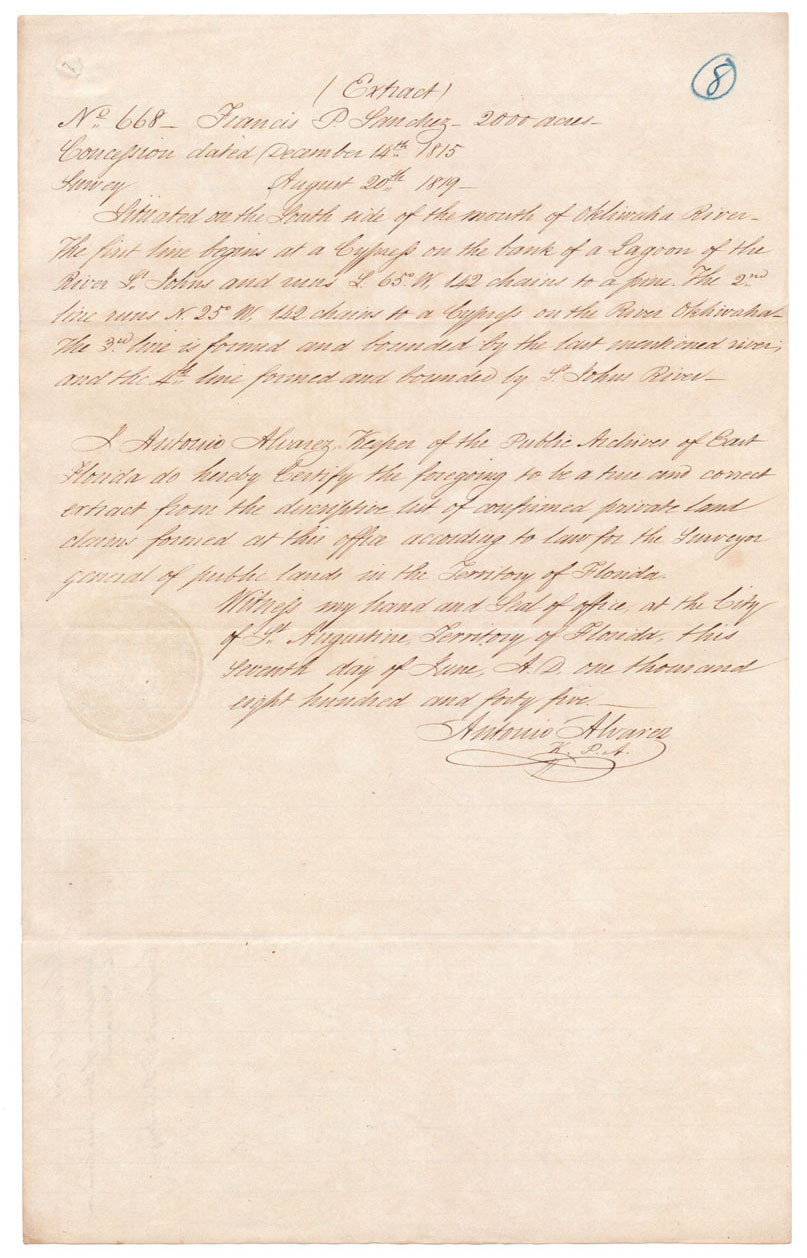 8
(Extract)
No. 668 - Francis P. Sanchez - 2000 acres -
Concession dated December 14th 1815
Survey August 20th 1819 -
Situated on the South side of the mouth of Okliwaha River -
The first line begins at a Cypress on the bank of a Lagoon of the
River St. Johns and runs S. 65° W. 142 chains to a pine. The 2nd
line runs N. 25° W. 142 chains to a Cypress on the River Okliwaha -
The 3rd line is formed and bounded by the last mentioned river;
and the 4th line formed and bounded by St. Johns River -
I Antonio Alvarez, Keeper of the Public Archives of East
Florida do hereby Certify the foregoing to be a true and correct
extract from the descriptive list of confirmed private land
claims formed at this office according to law for the Surveyor
general of public lands in the Territory of Florida.
Witness my hand and Seal of office, at the City
of St. Augustine, Territory of Florida, this
Seventh day of June, A.D. one thousand
eight hundred and forty five. -
Antonio Alvarez
K. P. A.